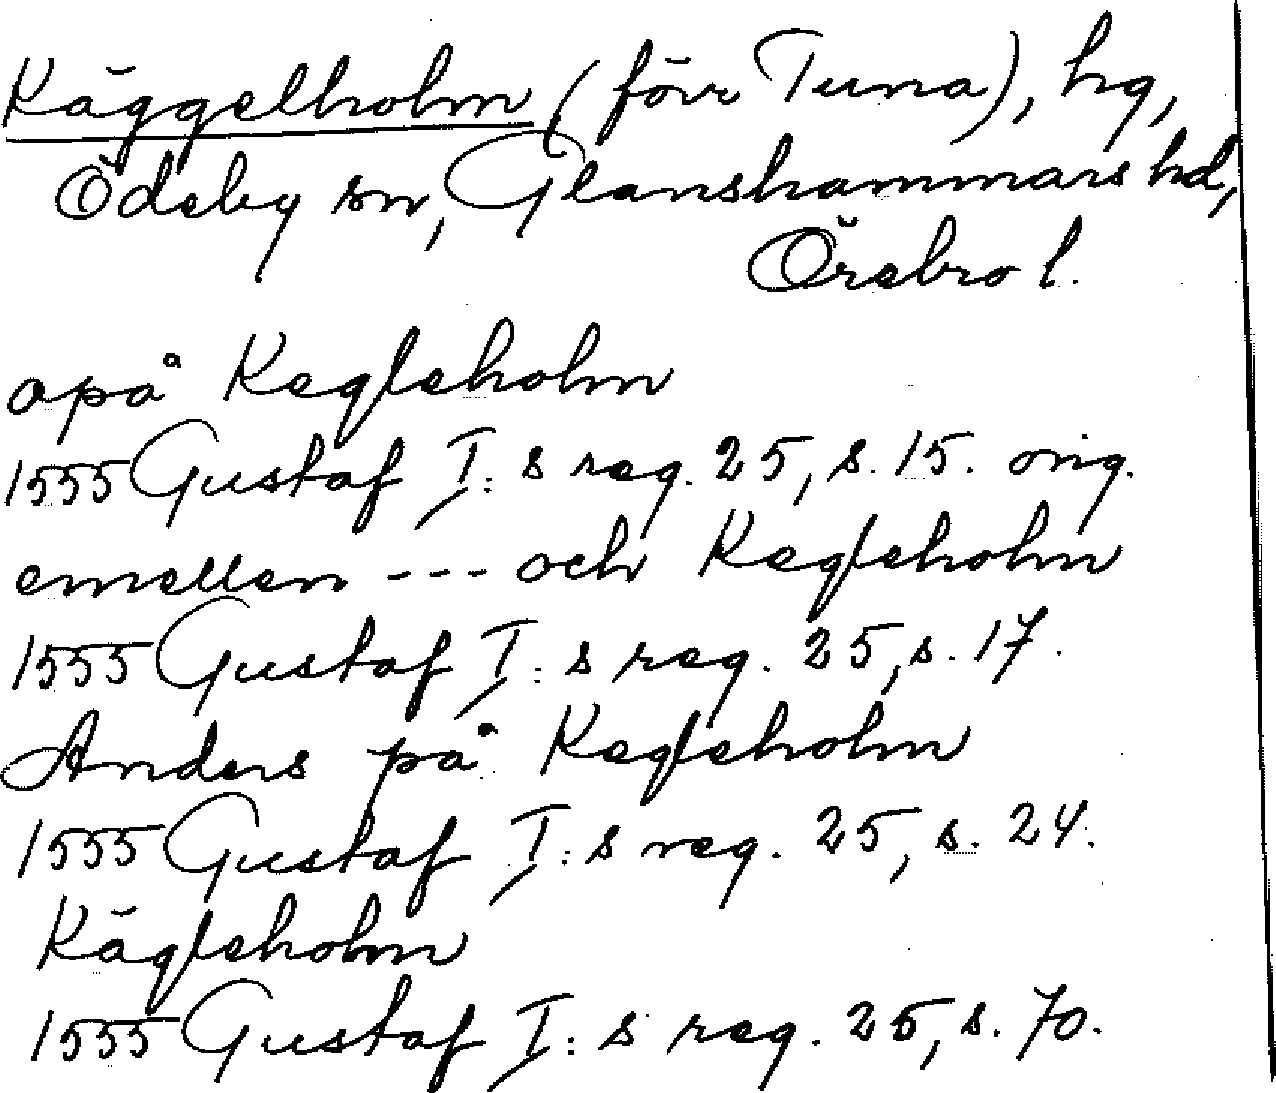 Käggelholm (förr Tuna), hg,
Ödeby sn, Glanshammars hd,
Örebro l.
opå Kegleholm
1555 Gustaf I:s reg. 25, s. 15. orig.
emellen --- och Kegleholm
1555 Gustaf I:s reg. 25, s. 17.
Anders på Kegleholm
1555 Gustaf I:s reg. 25, s. 24.
Kägleholm
1555 Gustaf I:s reg. 25, s. 70.